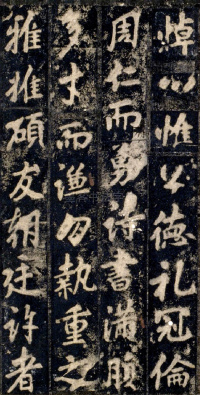 悼心惟公德礼冠倫
周仁而勇诗書滿腹
多才而遜勿執重之
雅推碩友朝廷许者